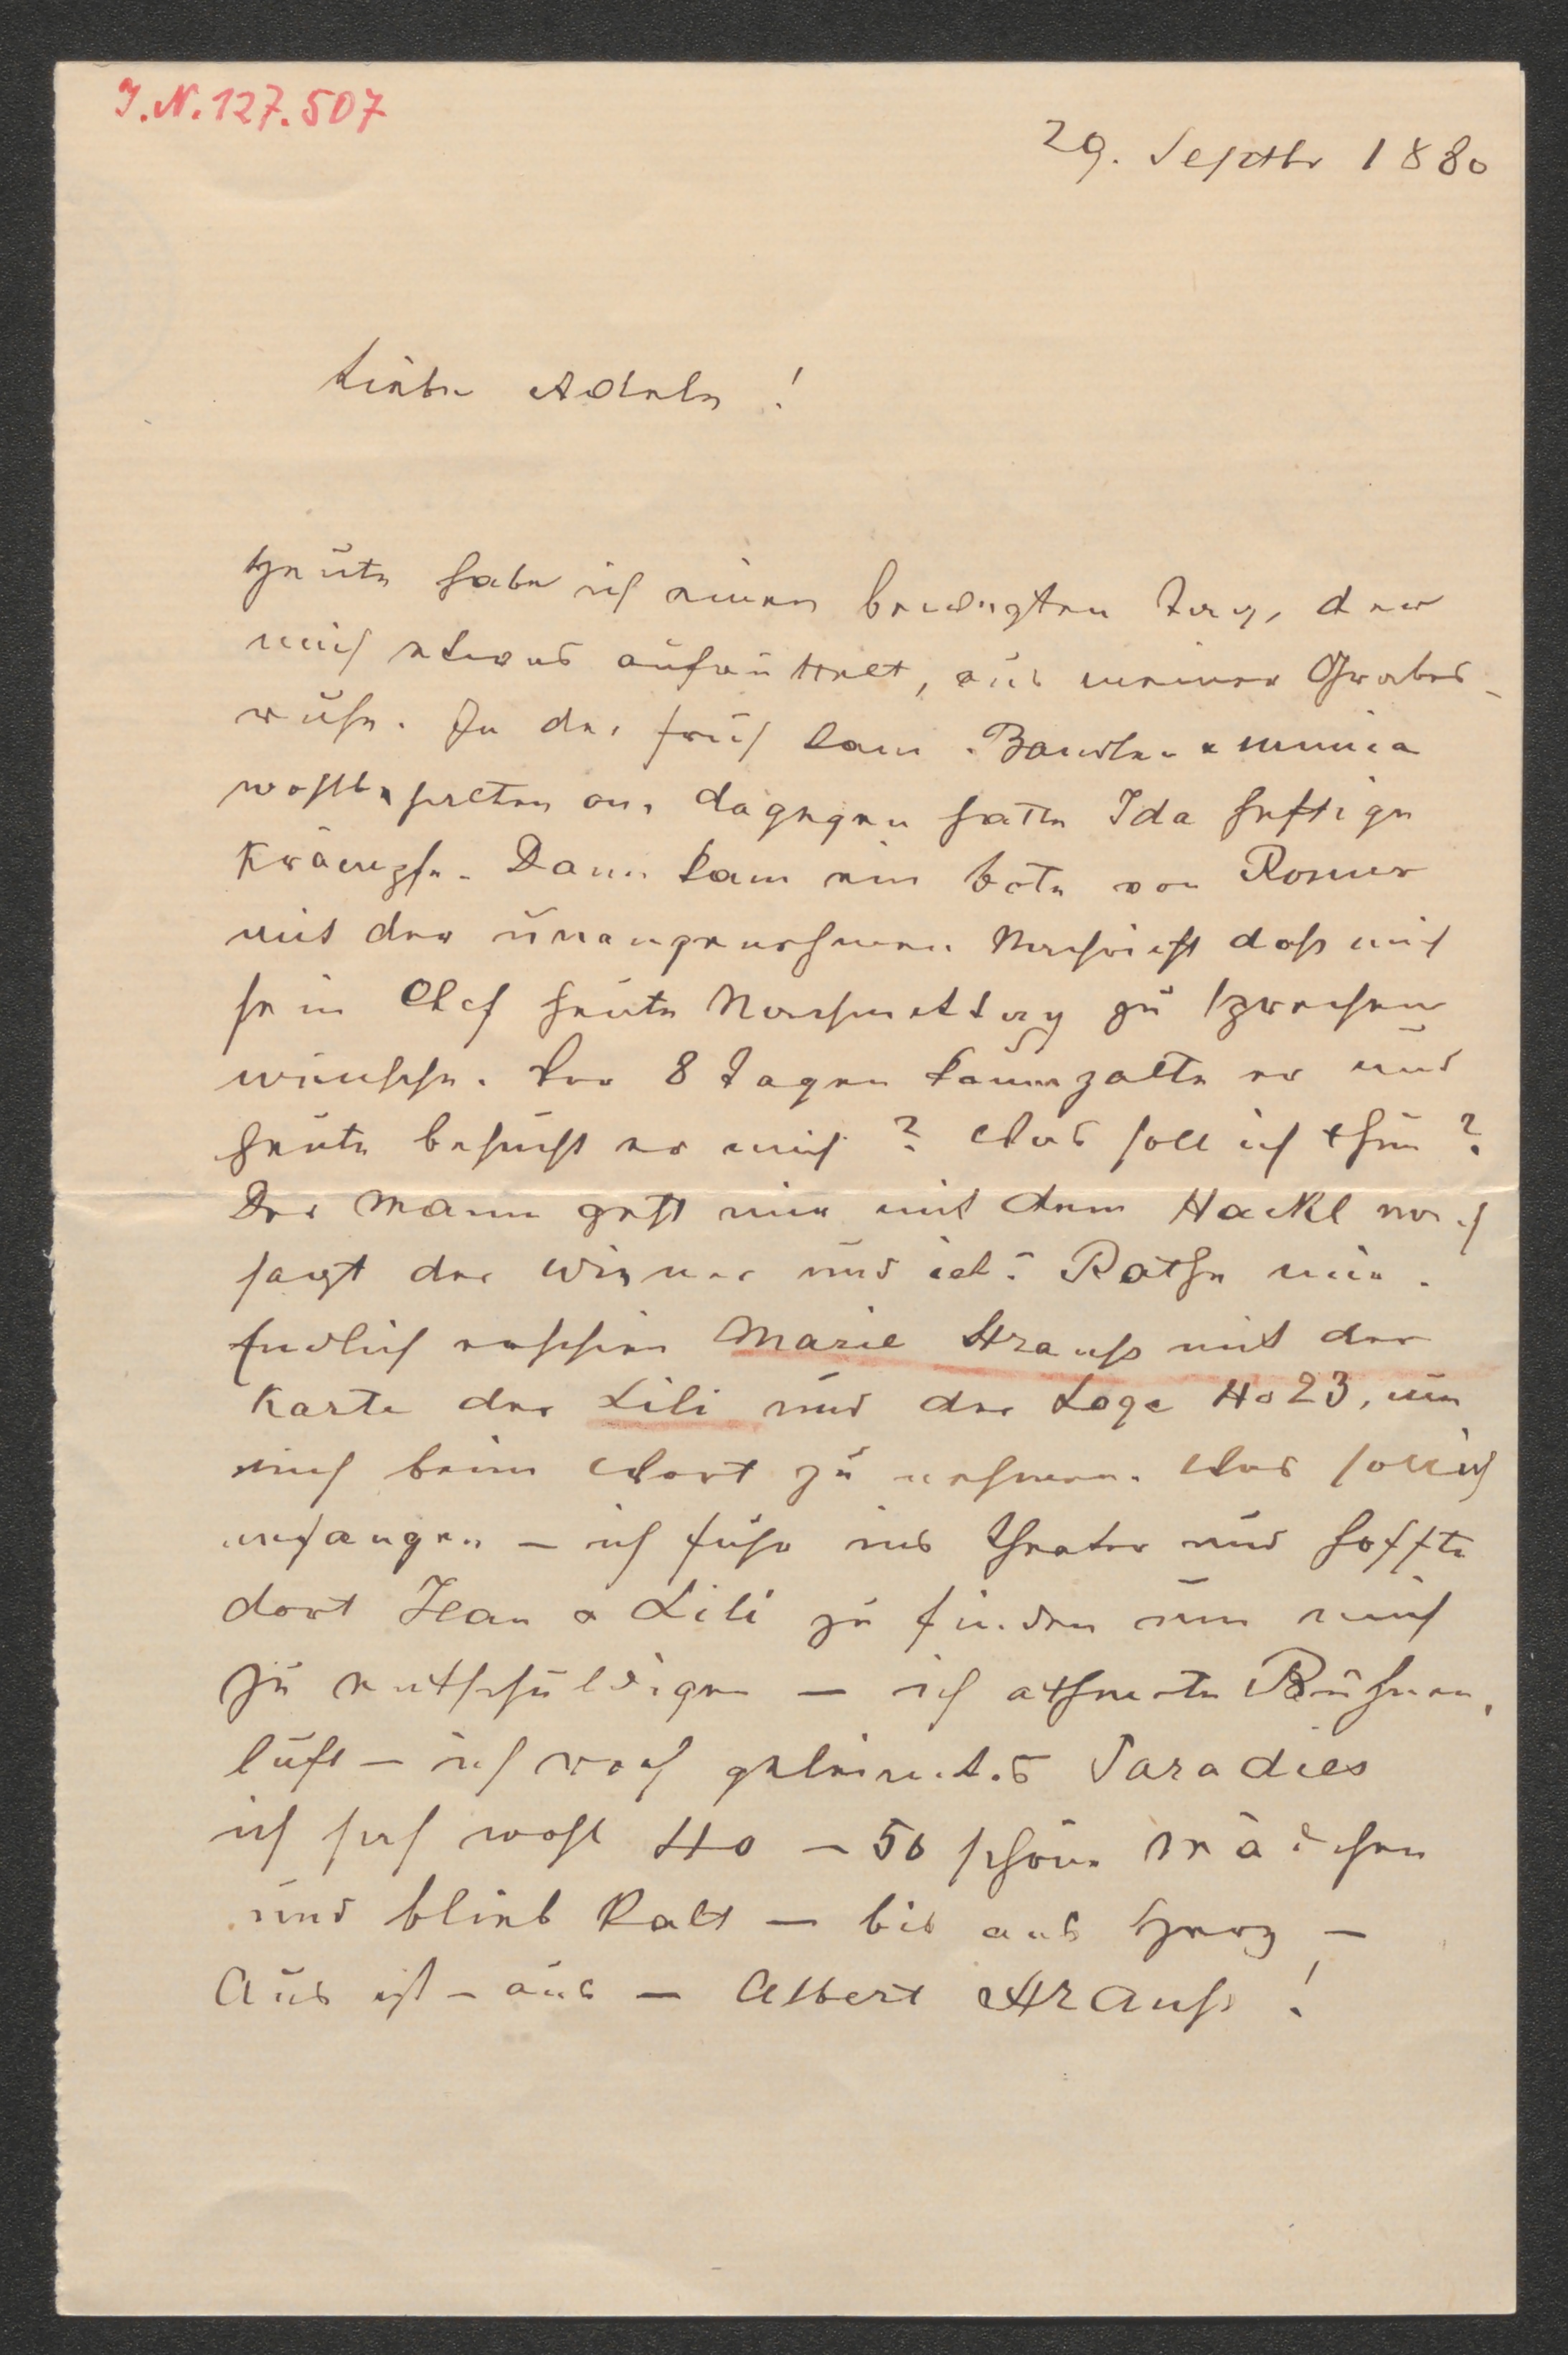 I.N. 127.507
29. Septbr 1880
Liebe Adele !
Heute habe ich einen bewegten Tag, der
mich etwas aufrüttelt, aus meiner Grabes-
ruhe. In der früh kam
wohlbehalten an, dagegen hatte Ida heftige
Krämpfe. Dann kam ein bote von Rosner
mit der unangenehmen Nachricht daß mich
sein Chef heute Nachmittag zu sprechen
wünsche. Vor 8 Tagen kaum zalte er und
heute besucht er mich ? Was soll ich thun ?
Der Mann geht mir mit dem Hackl nach
sagt der Wiener und ich: Rathe mir.
Endlich erschien Marie Strauß mit der
Karte der Lili und der Loge No 23, um
mich beim Wort zu nehmen. Was soll ich
anfangen – ich fuhr ins Theater und hoffte
dort Jean & Lili zu finden um mich
zu entschuldigen – ich athmete Bühnen-
luft – ich roch geleimtes Paradies
ich sah wohl 40 – 50 schöne Mädchen
und blieb kalt – bis ans Herz –
Aus ist – aus – Albert Strauß !